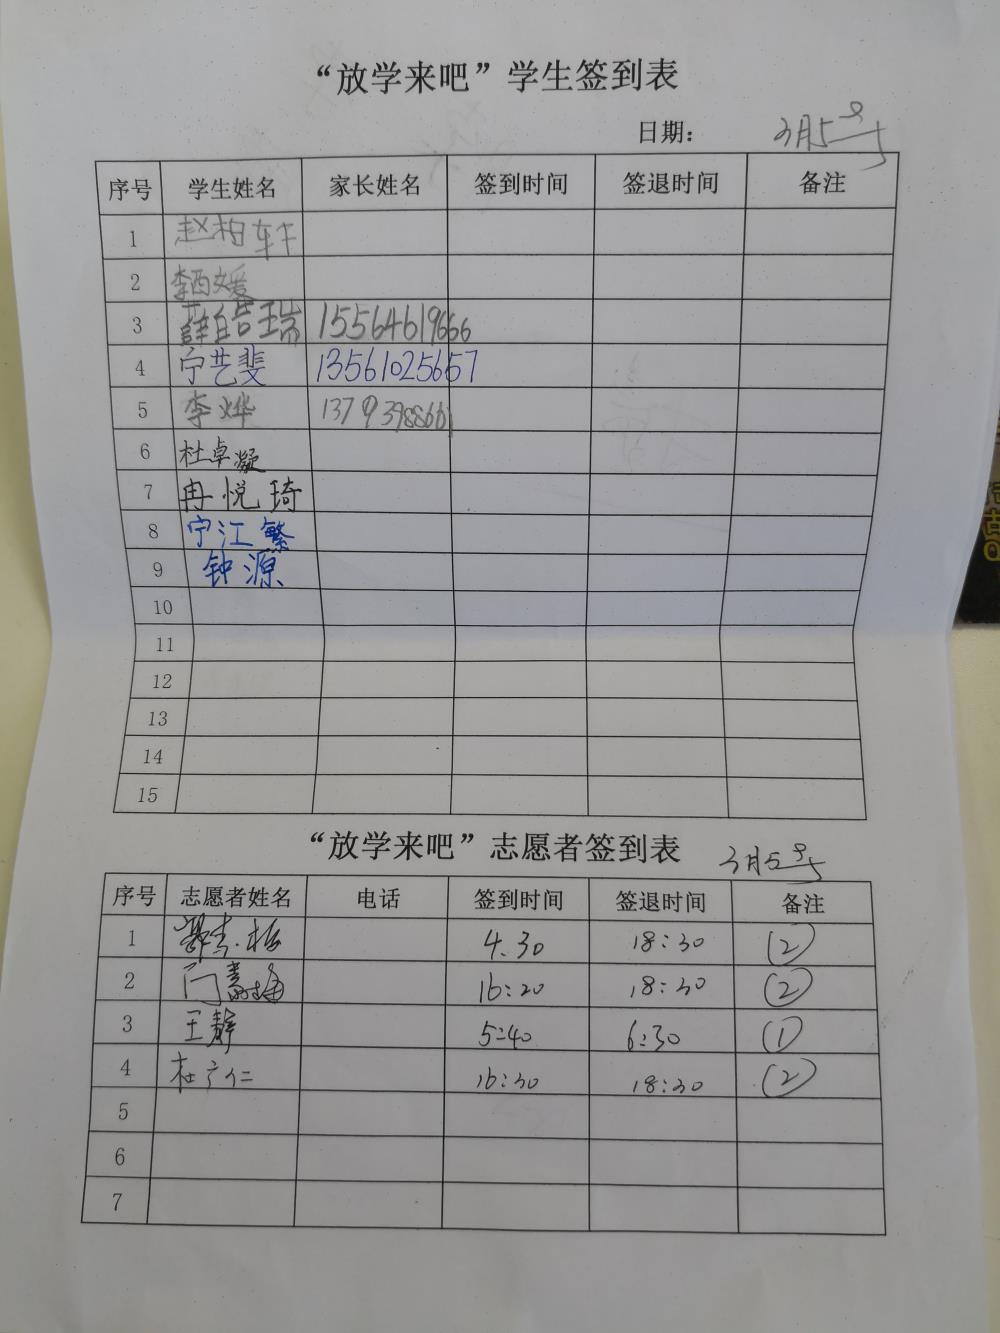 “放学来吧”学生签到表
日期: 3月5号
序号 学生姓名 家长姓名 签到时间 签退时间 备注
1 赵柏轩
2 李西媛
3 薛皓瑞 15564619666
4 宁艺斐 13561025657
5 李烨 13793988661
6 杜卓凝
7 冉悦琦
8 宁江繁
9 钟源
10
11
12
13
14
15
“放学来吧”志愿者签到表 3月5号
序号 志愿者姓名 电话 签到时间 签退时间 备注
1 4:30 18:30 (2)
2 门 16:20 18:30 (2)
3 王静 5:40 6:30 (1)
4 杜广仁 16:30 18:30 (2)
5
6
7